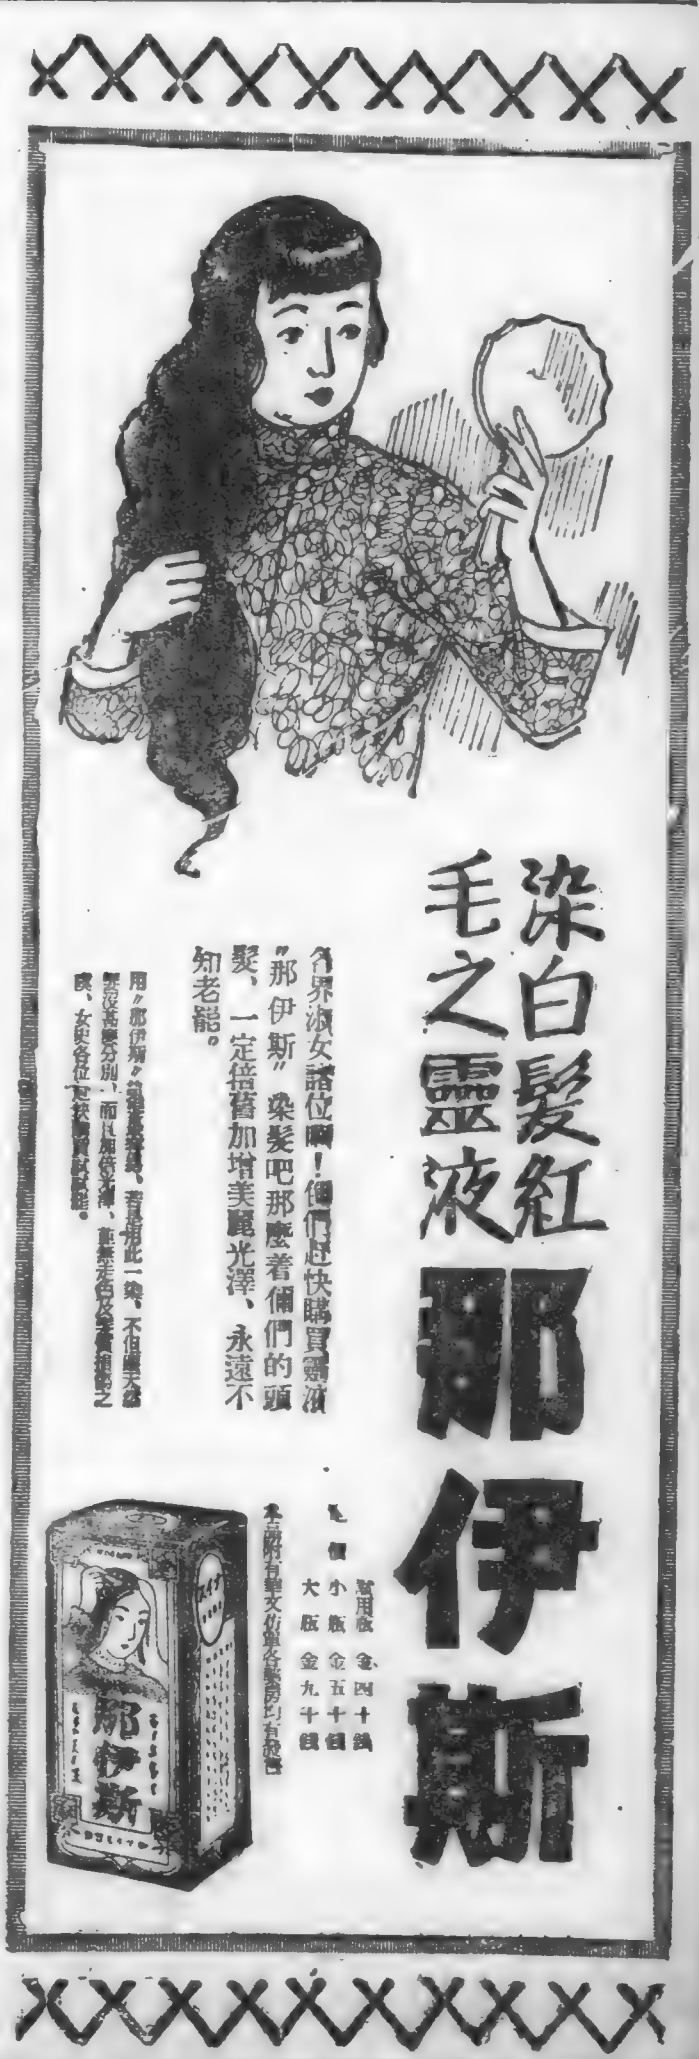 染白髮紅
毛之靈液
那伊斯
各界淑女諸位啊！倆們赶快購買靈液
〃那伊斯〃染髮吧那麼着倆們的頭
髮、一定倍舊加增美麗光澤、永遠不
知老能。
用〃那伊斯〃若是用此一染、不但與天然
髮沒甚麼分別、而且加倍光澤、
女史各位
定價
實用瓶 金四十錢
小瓶 金五十錢
大瓶 金九十錢
本品附有華文仿單各藥房均有發售
ナイス
那伊斯